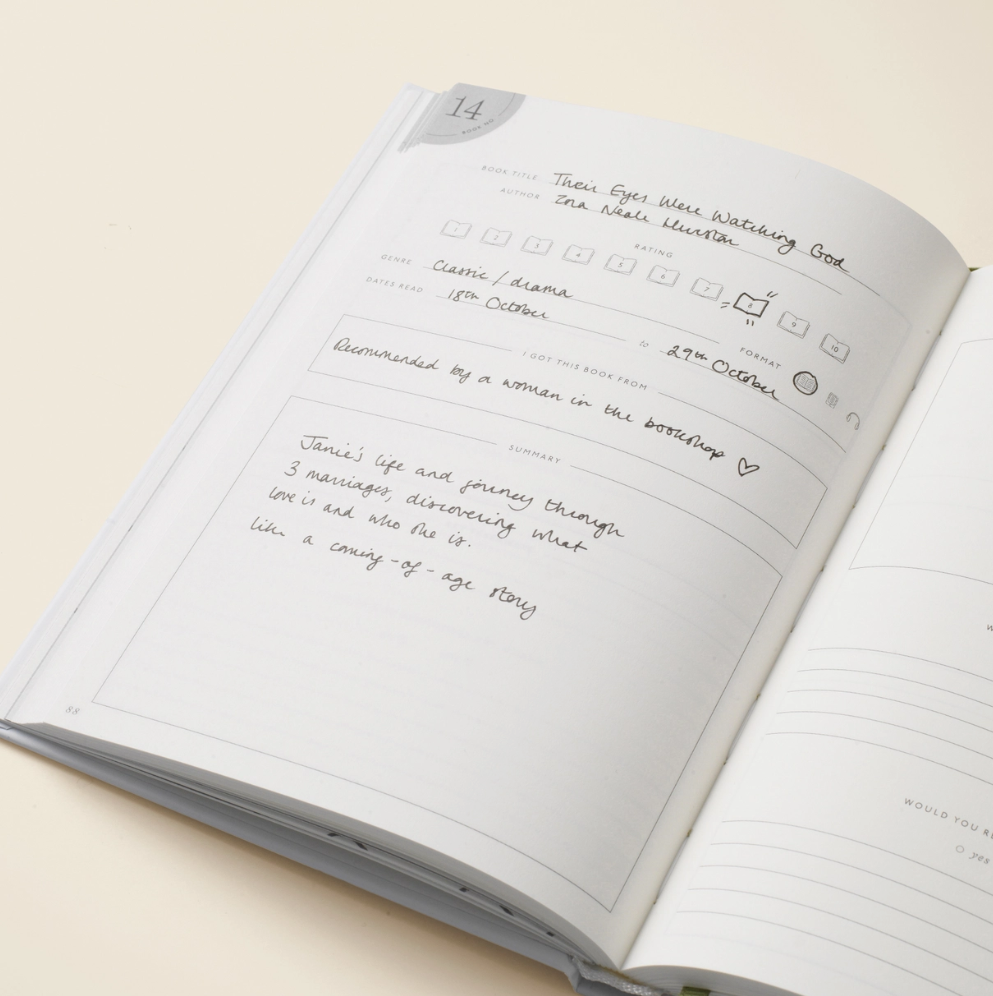 14
BOOK NO
BOOK TITLE Their Eyes Were Watching God
AUTHOR Zora Neale Hurston
RATING
1 2 3 4 5 6 7 8 9 10
GENRE Classic / drama
FORMAT
DATES READ 18th October to 29th October
I GOT THIS BOOK FROM
Recommended by a woman in the bookshop ♡
SUMMARY
Janie's life and journey through
3 marriages, discovering what
love is and who she is.
like a coming-of-age story
88
W
WOULD YOU RE
yes